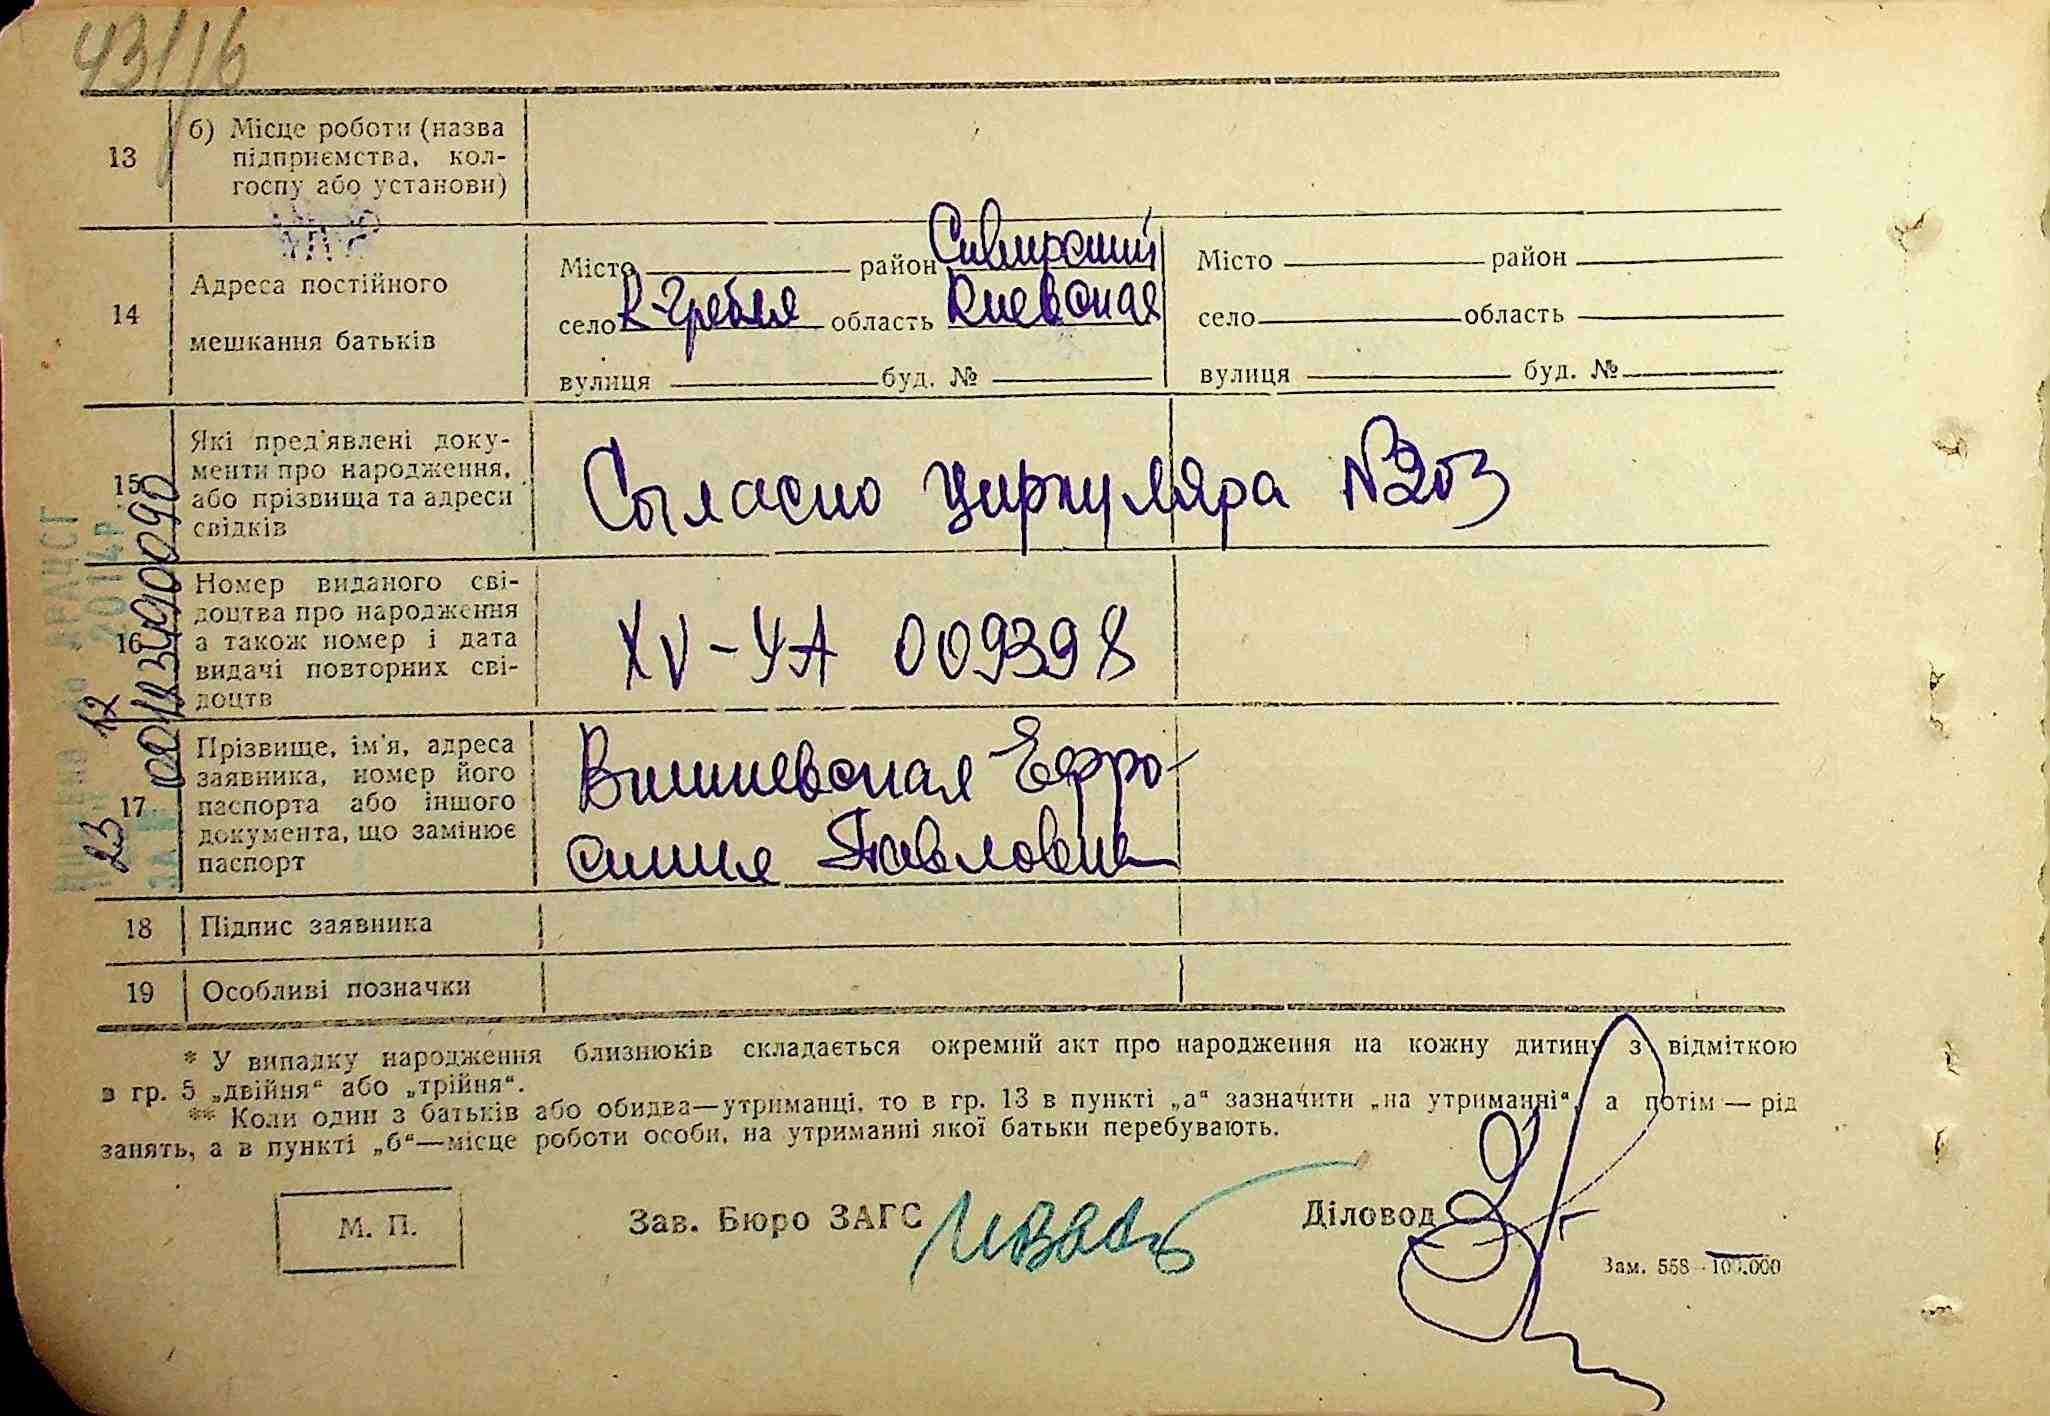 43/16
13
б) Місце роботи (назва
підприємства, кол-
госпу або установи)
14
Адреса постійного
мешкання батьків
Місто район Сквирский
село К-Гребля область Киевская
вулиця буд. №
Місто район
село область
вулиця буд. №
15
Які пред'явлені доку-
менти про народження,
або прізвища та адреси
свідків
Сыгласно Циркуляра №203
16
Номер виданого сві-
доцтва про народження
а також номер і дата
видачі повторних сві-
доцтв
XV-УА 009398
17
Прізвище, ім'я, адреса
заявника, номер його
паспорта або іншого
документа, що замінює
паспорт
Вишневская Ефро-
синия Павловна
18
Підпис заявника
19
Особливі позначки
* У випадку народження близнюків складається окремий акт про народження на кожну дитину з відміткою
в гр. 5 „двійня“ або „трійня“.
** Коли один з батьків або обидва—утриманці, то в гр. 13 в пункті „а“ зазначити „на утриманні“, а потім — рід
занять, а в пункті „б“—місце роботи особи, на утриманні якої батьки перебувають.
М. П.
Зав. Бюро ЗАГС
Діловод
Зам. 558—100.000
23 12 2014р